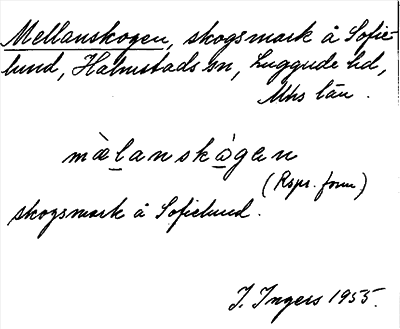 Mellanskogen, skogsmark å Sofie-
lund, Halmstads sn, Luggude hd,
Mhs län.
mä̀lanskå̀gen
(Rspr. form)
skogsmark å Sofielund.
I. Ingers 1955.